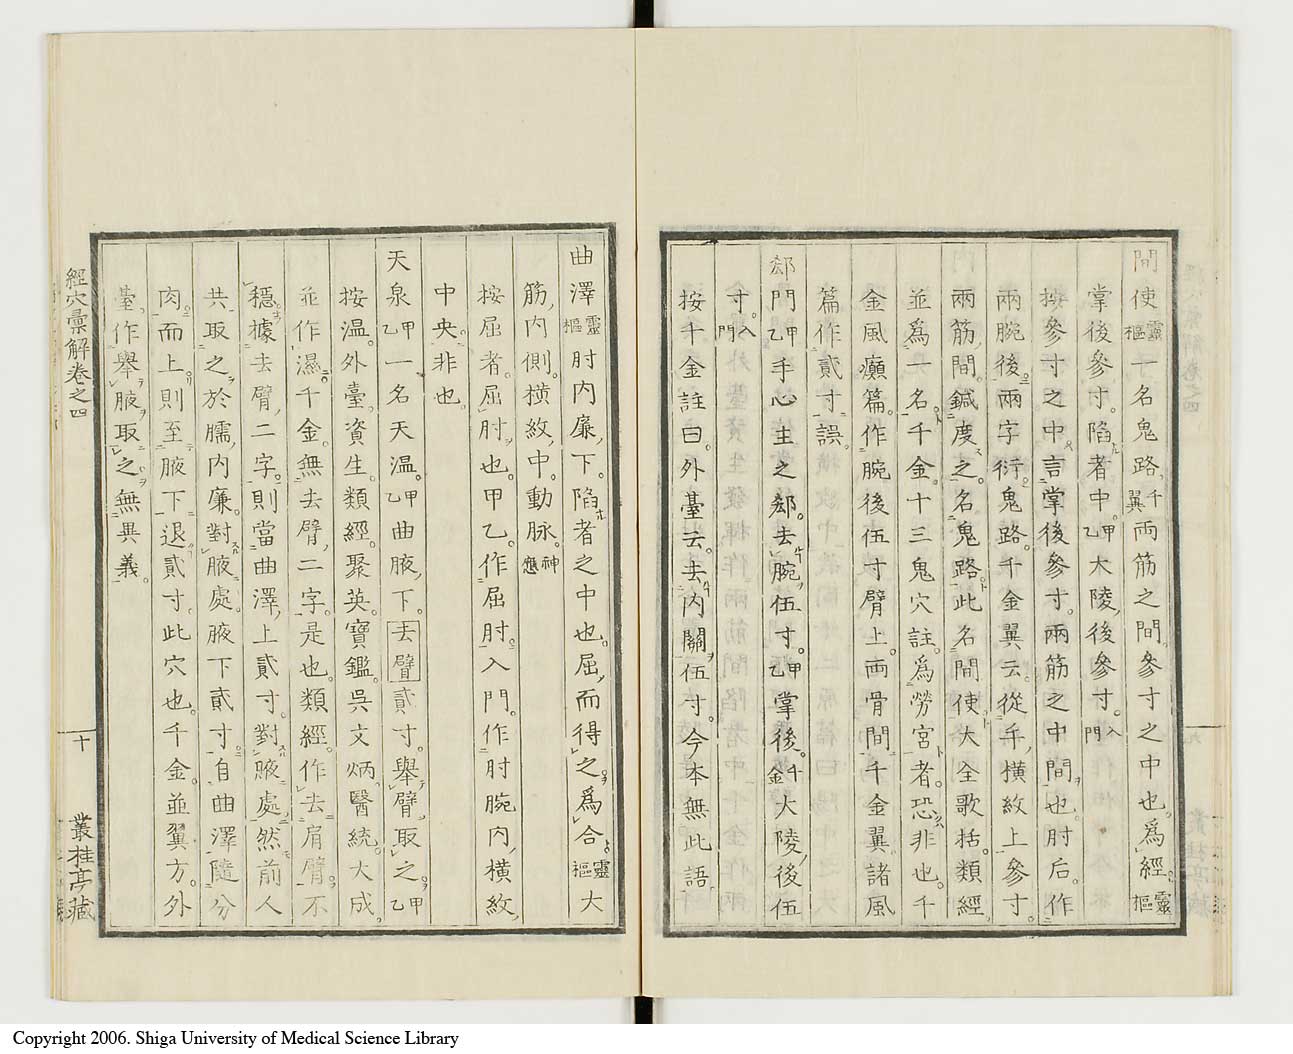 間使靈樞一名鬼路千翼兩筋之間參寸之中也爲經靈樞
掌後參寸陷者中甲乙大陵後參寸入門
按參寸之中言掌後參寸兩筋之中間也肘后作
兩腕後兩字衍鬼路千金翼云從手橫紋上參寸
兩筋間鍼度之名鬼路此名間使大全歌括類經
並爲一名千金十三鬼穴註爲勞宮者恐非也千
金風癲篇作腕後伍寸臂上兩骨間千金翼諸風
篇作貳寸誤
郄門甲乙手心主之郄去腕伍寸甲乙掌後千金大陵後伍
寸入門
按千金註曰外臺云去內關伍寸今本無此語
曲澤靈樞肘内廉下陷者之中也屈而得之爲合靈樞大
筋内側橫紋中動脉神應
按屈者屈肘也甲乙作屈肘入門作肘腕内橫紋
中央非也
天泉甲乙一名天温甲乙曲腋下去臂貳寸舉臂取之甲乙
按温外臺資生類經聚英寶鑑吳文炳醫統大成
並作濕千金無去臂二字是也類經作去肩臂不
穩據去臂二字則當曲澤上貳寸對腋處然前人
共取之於臑内廉對腋處腋下貳寸自曲澤隨分
肉而上則至腋下退貳寸此穴也千金並翼方外
臺作舉腋取之無異義
經穴彙解卷之四
十
叢桂亭藏
Copyright 2006. Shiga University of Medical Science Library